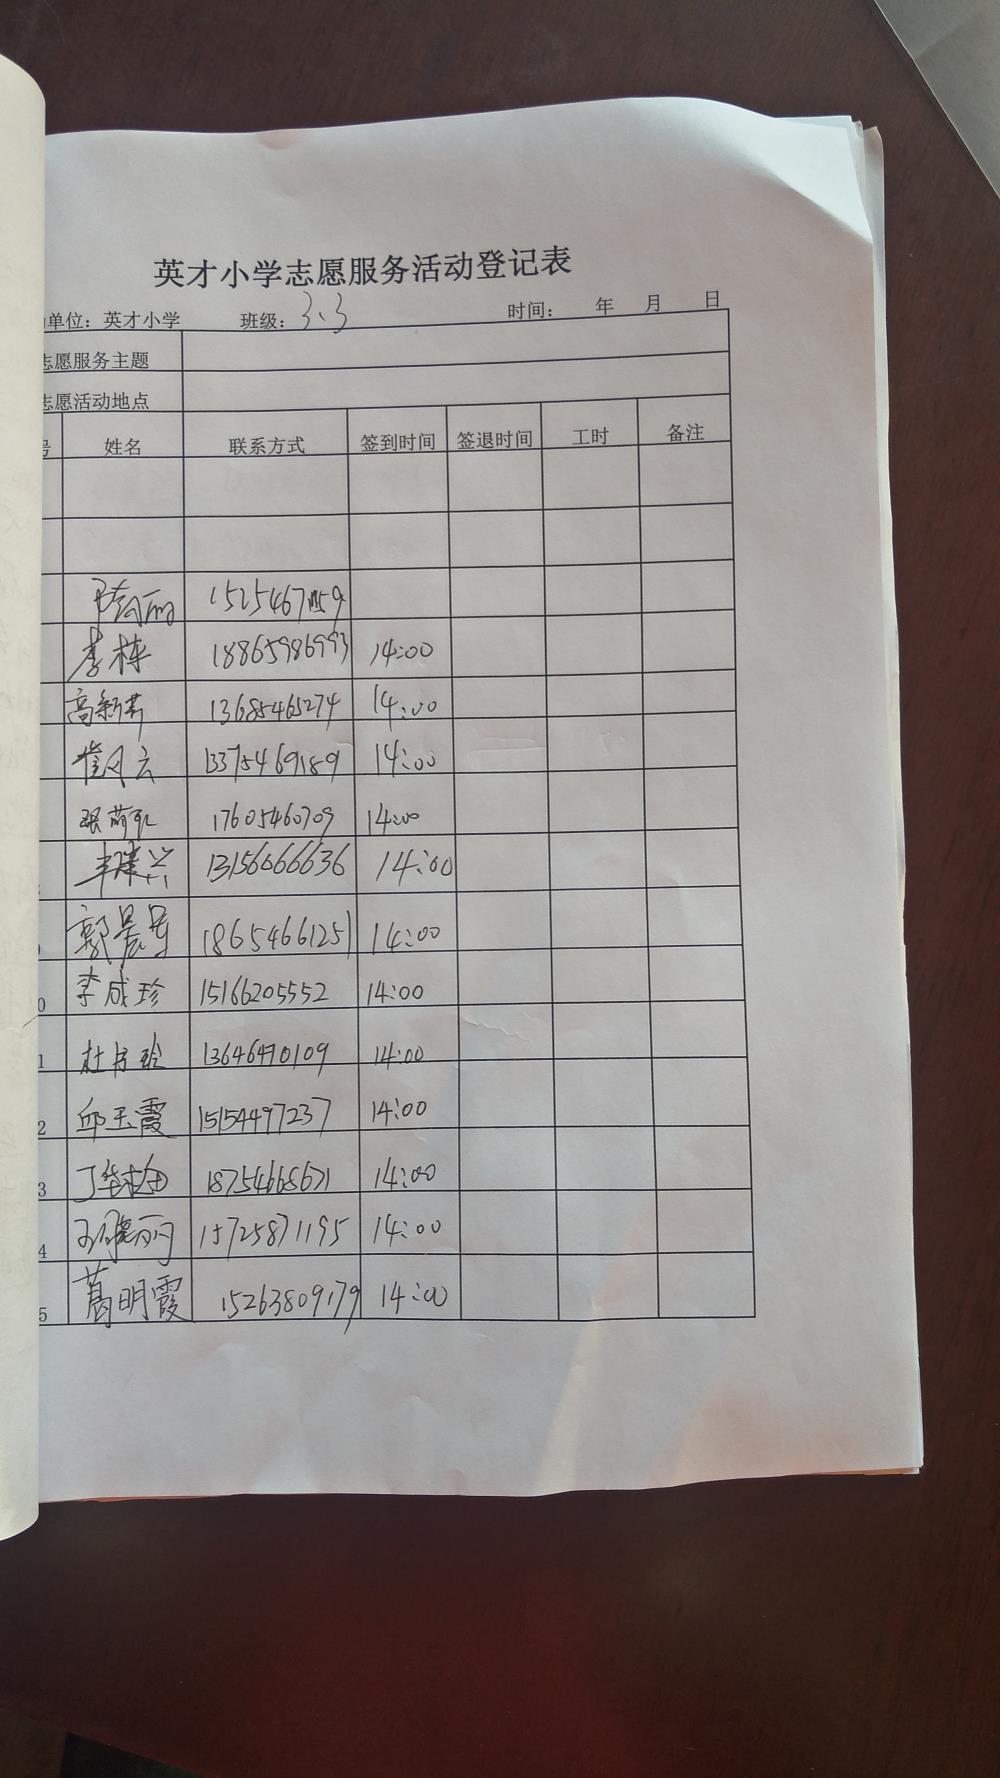 英才小学志愿服务活动登记表
单位：英才小学 班级：3.3 时间： 年 月 日
志愿服务主题
志愿活动地点
号 姓名 联系方式 签到时间 签退时间 工时 备注
李栋 18865986993 14:00
高新芳 13685465274 14:00
崔风云 13375469189 14:00
17605460709 14:00
丰建兴 13156066636 14:00
郭晨 18654661251 14:00
0 李成珍 15166205552 14:00
1 杜月玲 13646470109 14:00
2 邱玉霞 15154497237 14:00
3 18754668671 14:00
4 15725871195 14:00
5 葛明霞 15263809179 14:00